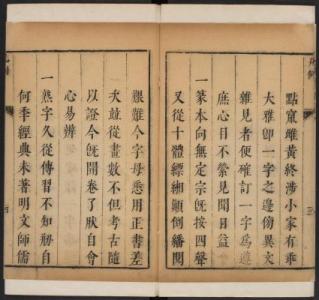 點竄雌黃終涉小家有乖
大雅卽一字之邊傍異文
雜見者便確訂一字爲遵
庶心目不縈見聞日益
一篆本向無定宗旣按四聲
又從十體縹緗顚倒繙閱
艱難今字母悉用正書差
次竝從畫數不但考古隨
以證今旣開卷了肰自會
心易辨
一熟字久從傳習不知刱自
何季經典未著明文師儒